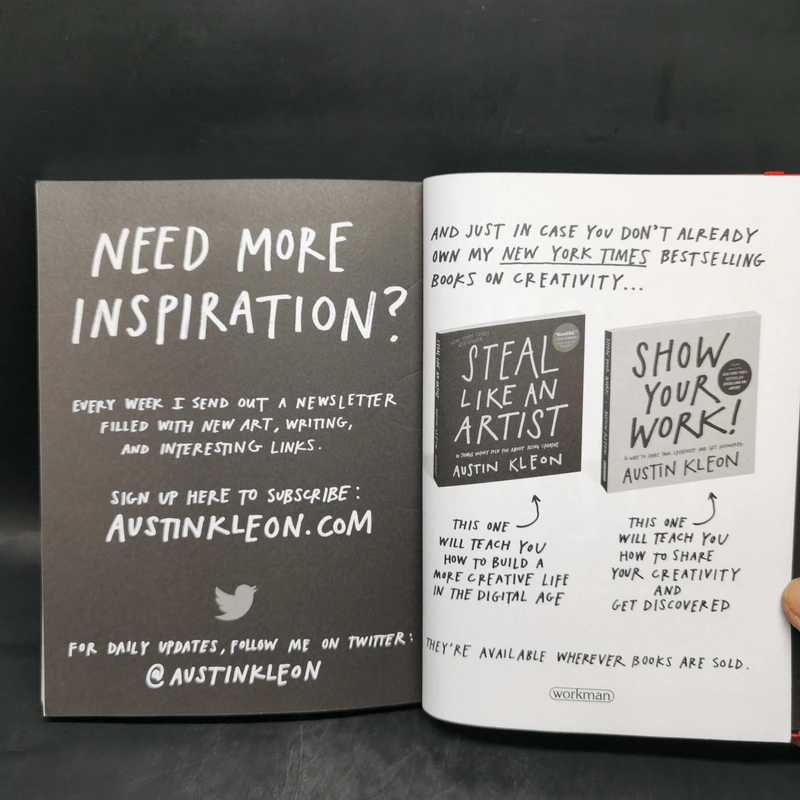 NEED MORE
INSPIRATION?
EVERY WEEK I SEND OUT A NEWSLETTER
FILLED WITH NEW ART, WRITING,
AND INTERESTING LINKS.
SIGN UP HERE TO SUBSCRIBE:
AUSTINKLEON.COM
FOR DAILY UPDATES, FOLLOW ME ON TWITTER:
@AUSTINKLEON
AND JUST IN CASE YOU DON'T ALREADY
OWN MY NEW YORK TIMES BESTSELLING
BOOKS ON CREATIVITY...
NEW YORK TIMES
BESTSELLER
STEAL
LIKE AN
ARTIST
10 THINGS NOBODY TOLD YOU ABOUT BEING CREATIVE
AUSTIN KLEON
THIS ONE
WILL TEACH YOU
HOW TO BUILD A
MORE CREATIVE LIFE
IN THE DIGITAL AGE
SHOW
YOUR
WORK!
10 WAYS TO SHARE YOUR CREATIVITY AND GET DISCOVERED
AUSTIN KLEON
THIS ONE
WILL TEACH YOU
HOW TO SHARE
YOUR CREATIVITY
AND
GET DISCOVERED
THEY'RE AVAILABLE WHEREVER BOOKS ARE SOLD.
workman